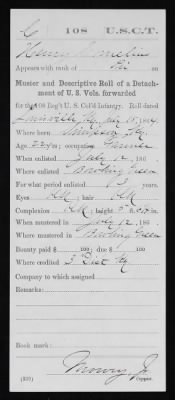 C 108 U.S.C.T.
Appears with rank of Pri on
Muster and Descriptive Roll of a Detach-
ment of U. S. Vols. forwarded
for the 108 Reg't U. S. Col'd Infantry. Roll dated
Louisville, Ky. 1864.
Where born Simpson Ky.
Age 22 y'rs; occupation Farmer
When enlisted July 12, 186
Where enlisted Bowling Green
For what period enlisted 3 years.
Eyes ; hair
Complexion ; height 5 ft. in.
When mustered in July 12, 186
Where mustered in Bowling Green
Bounty paid $ 100; due $ 100
Where credited 3 Dist Ky
Company to which assigned
Remarks:
Book mark:
Mowry, Jr
(339) Copyist.